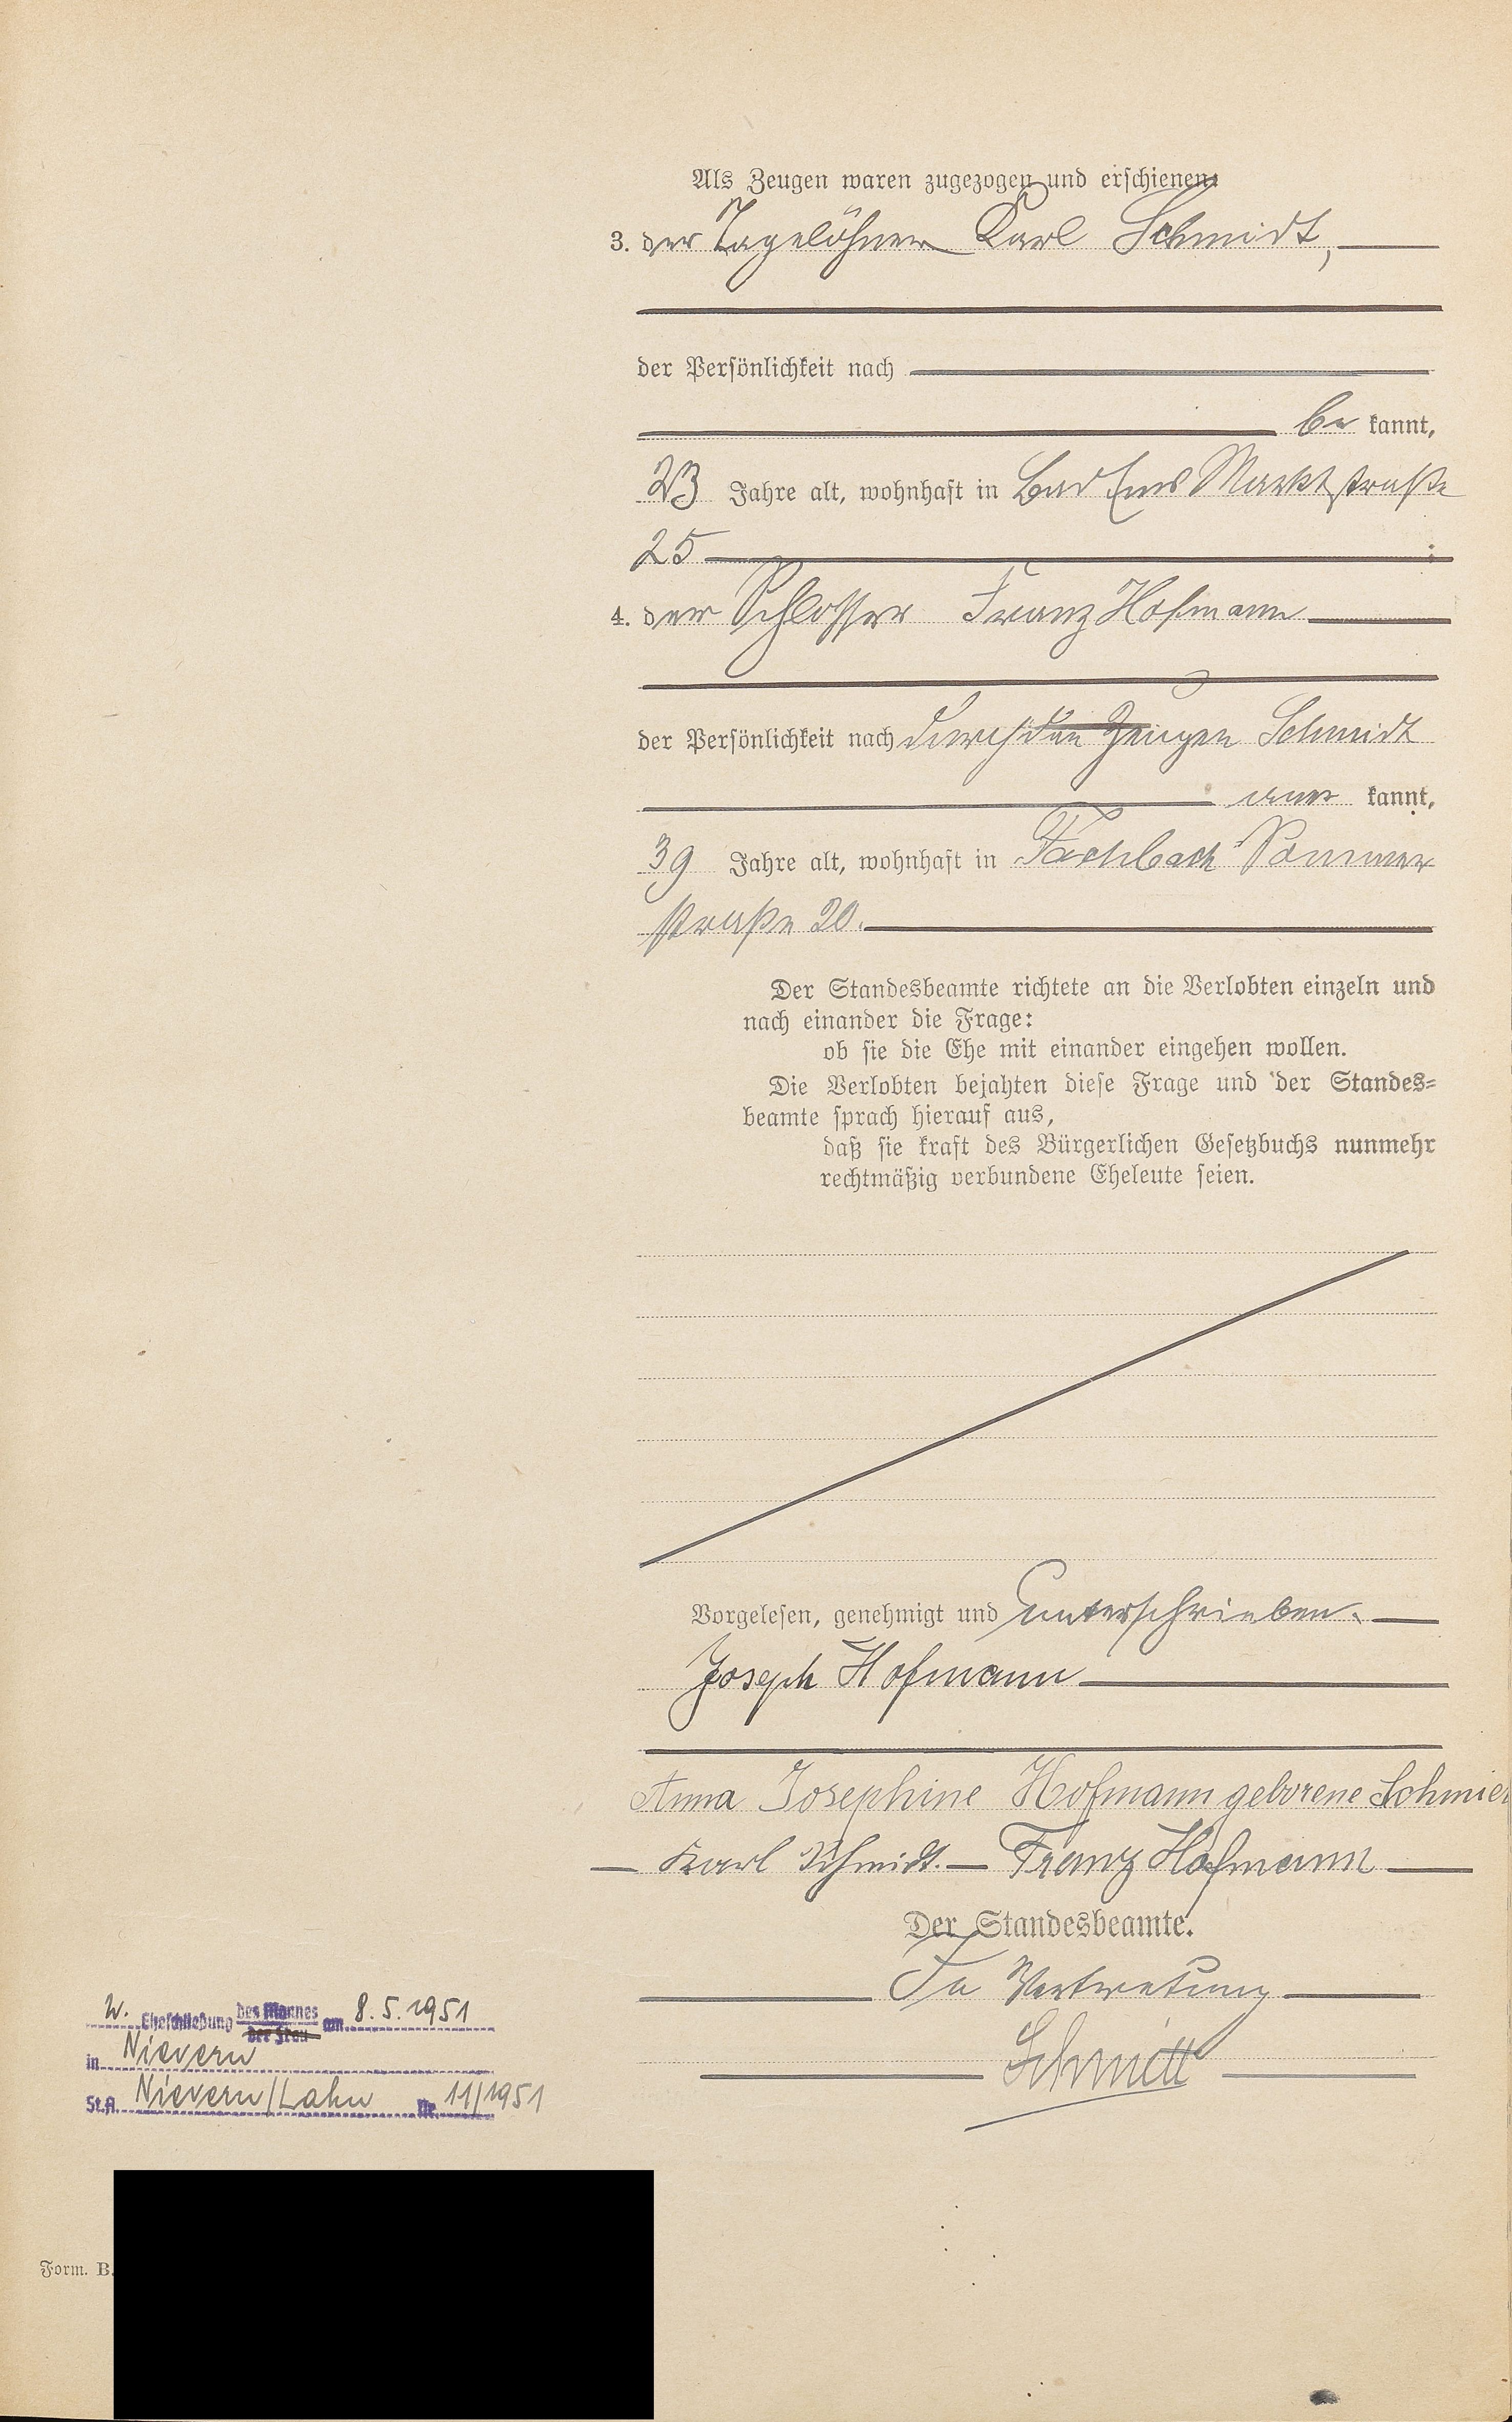 Als Zeugen waren zugezogen und erschienen:
3. der Tagelöhner Karl Schmidt,
der Persönlichkeit nach
be kannt,
23 Jahre alt, wohnhaft in Bad Ems Marktstraße
25 ;
4. der Schlosser Franz Hofmann
der Persönlichkeit nach durch den Zeugen Schmidt
aner kannt,
39 Jahre alt, wohnhaft in Fachbach Sommer
straße 20.
Der Standesbeamte richtete an die Verlobten einzeln und
nach einander die Frage:
ob sie die Ehe mit einander eingehen wollen.
Die Verlobten bejahten diese Frage und der Standes-
beamte sprach hierauf aus,
daß sie kraft des Bürgerlichen Gesetzbuchs nunmehr
rechtmäßig verbundene Eheleute seien.
Vorgelesen, genehmigt und unterschrieben.
Joseph Hofmann
Anna Josephine Hofmann geborene Schmid
Karl Schmidt. Franz Hofmann
Der Standesbeamte.
In Vertretung
Schmitt
W. Eheschließung des Mannes der Frau am 8.5.1951
in Nievern
St.A. Nievern/Lahn Nr. 11/1951
Form. B.